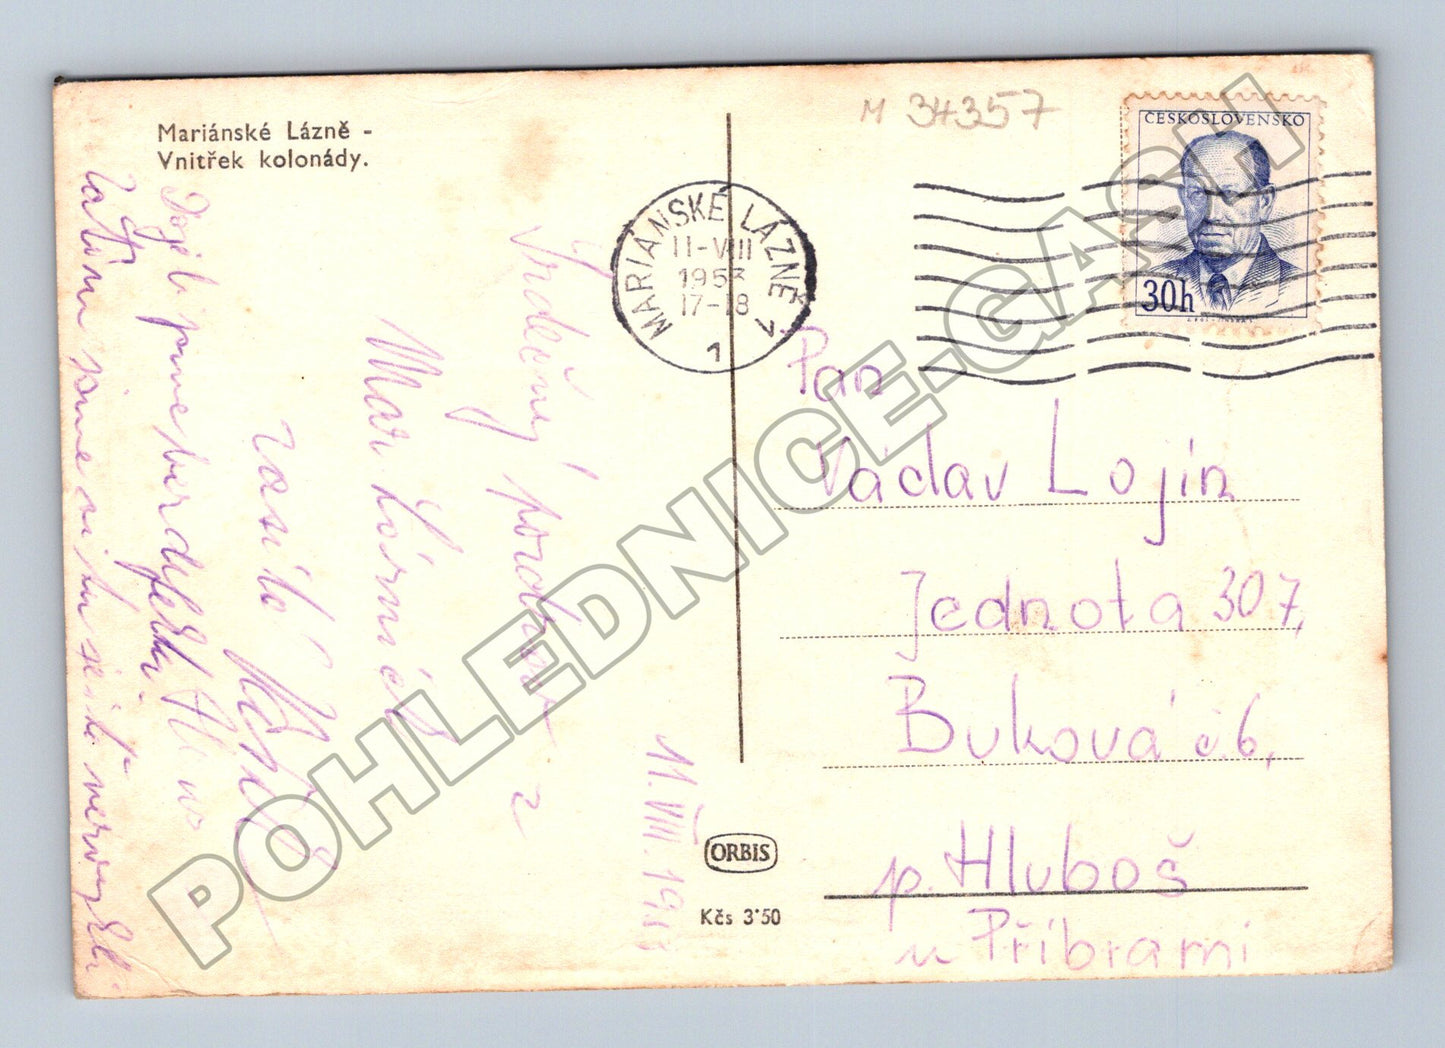 Mariánské Lázně -
Vnitřek kolonády.
M 34357
ČESKOSLOVENSKO
30h
MARIÁNSKÉ LÁZNĚ 1
11-VIII
1953
17-18
1
Srdečný pozdrav z
Mar. Lázniček
zasílá
Dojeli jsme
zatím jsme se
11. VIII. 1953
Pan
Václav Lojín
Jednota 307,
Buková č. 6,
p. Hluboš
u Příbrami
ORBIS
Kčs 3·50
POHLEDNICE.GASH